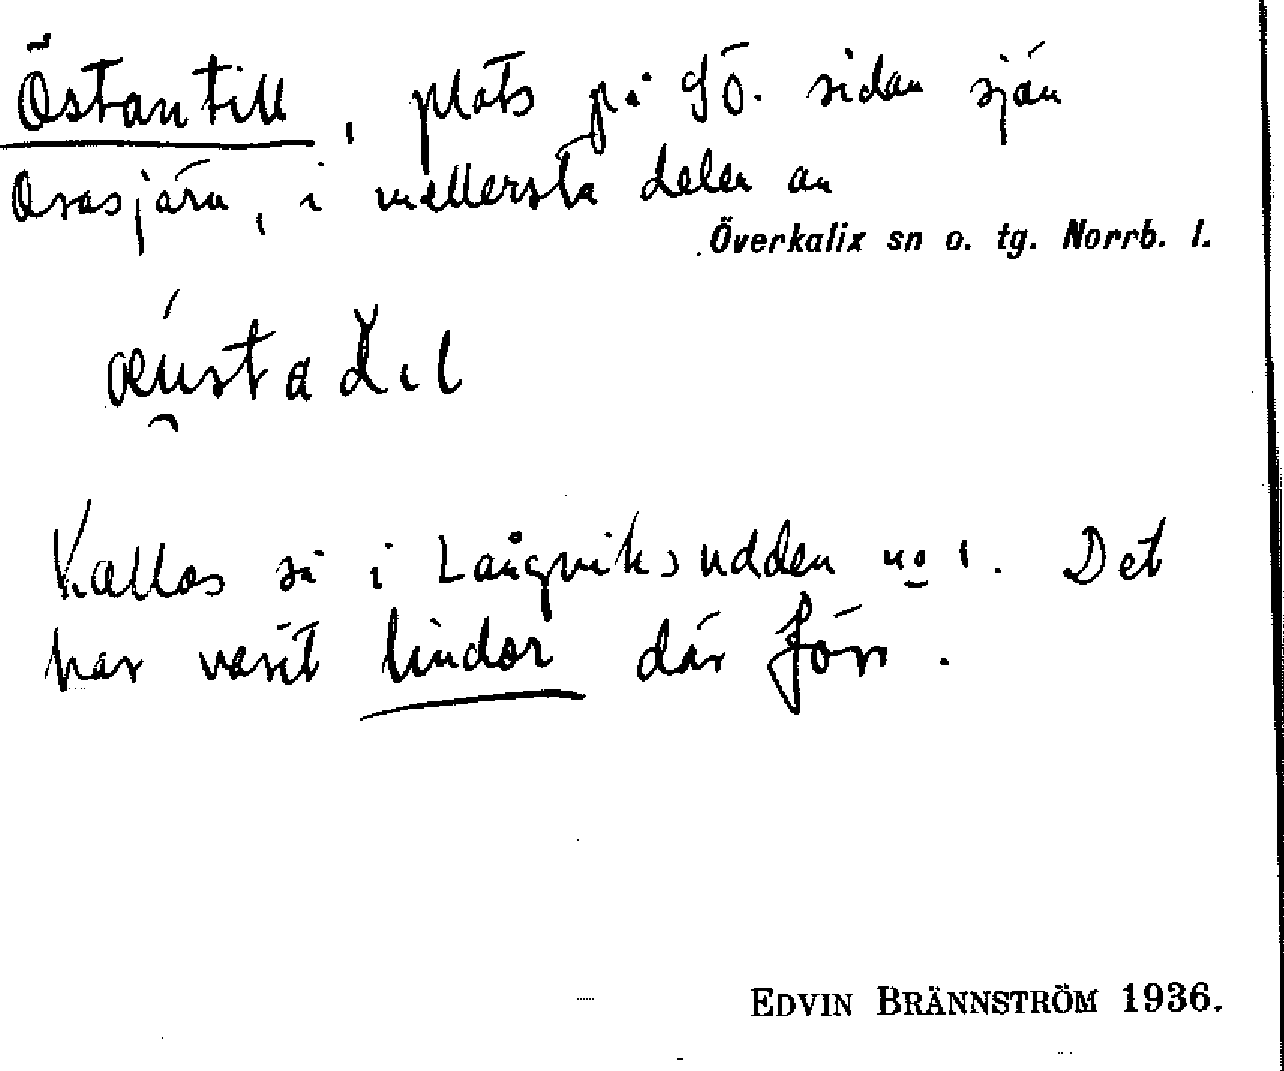 Östantill, plats på SÖ. sidan sjön
Orasjärv, i mellersta delen av
Överkalix sn o. tg. Norrb. l.
Kallas så i Långviksudden no 1. Det
har varit lindor där förr.
EDVIN BRÄNNSTRÖM 1936.